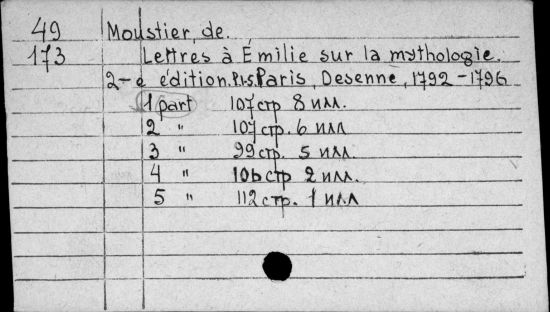 49 Moustier, de.
173 Lettres à Émilie sur la mythologie.
2-e édition. P.1-5. Paris, Desenne, 1792-1796
1 part 107 стр 8 илл.
2 " 107 стр. 6 илл
3 " 99 стр. 5 илл.
4 " 106 стр 2 илл.
5 " 112 стр. 1 илл